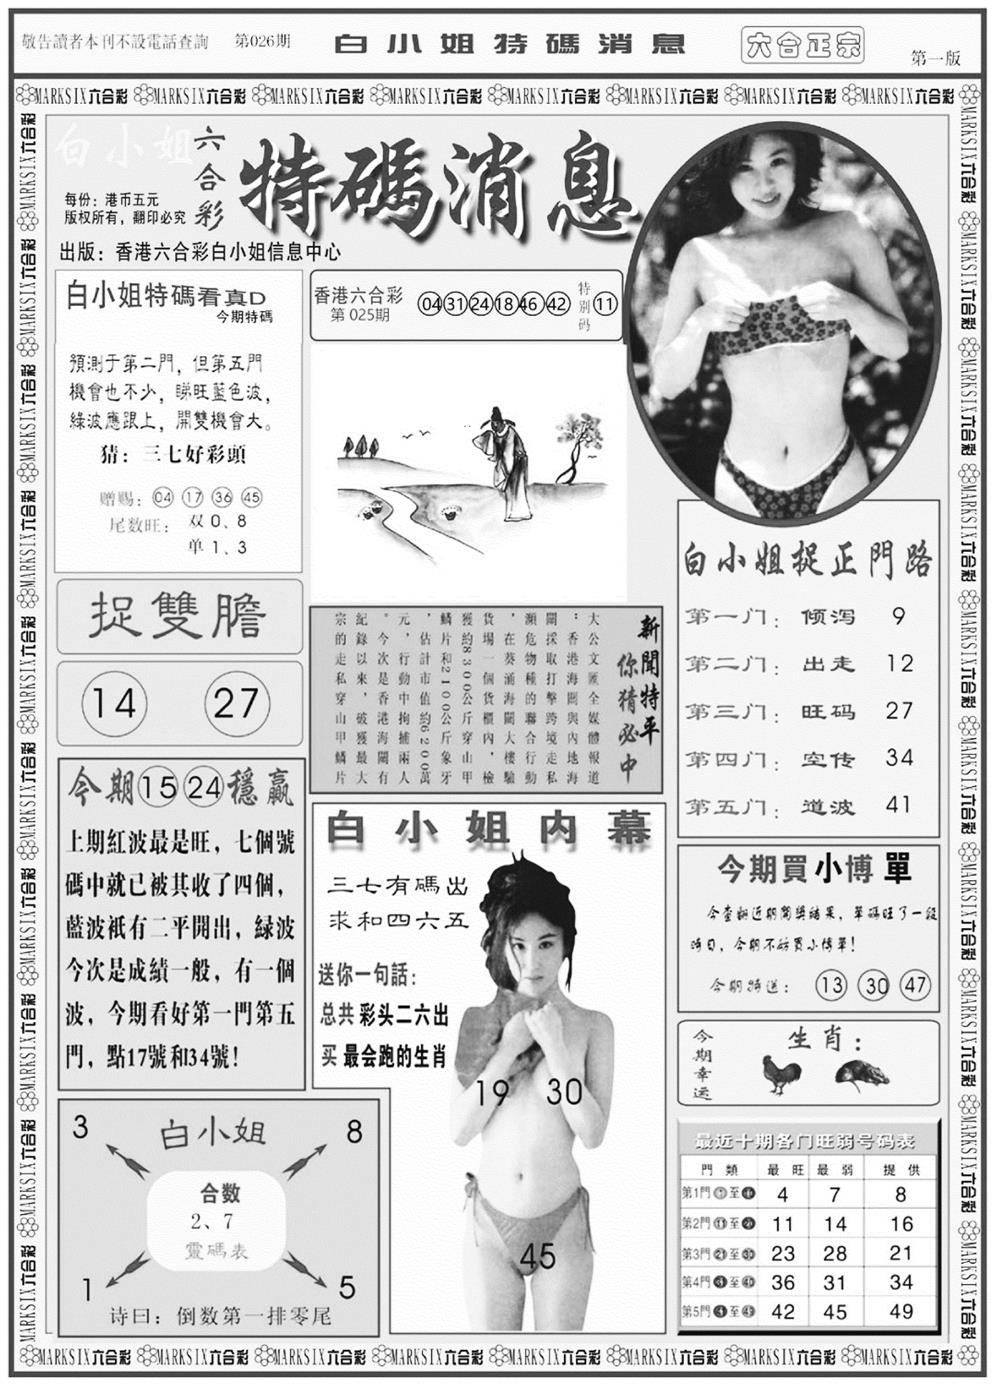 敬告讀者本刊不設電話查詢
第026期
白小姐特碼消息
六合正宗
第一版
MARKSIX六合彩 MARKSIX六合彩 MARKSIX六合彩 MARKSIX六合彩 MARKSIX六合彩 MARKSIX六合彩 MARKSIX六合彩 MARKSIX六合彩
白小姐
六合彩
特碼消息
每份：港币五元
版权所有，翻印必究
出版：香港六合彩白小姐信息中心
白小姐特碼看真D
今期特碼
預測于第二門，但第五門
機會也不少，睇旺藍色波，
綠波應跟上，開雙機會大。
猜：三七好彩頭
赠赐：04 17 36 45
尾数旺：双0、8
单1、3
香港六合彩
第025期
04 31 24 18 46 42
特别码
11
捉雙膽
14 27
新聞特平
你猜必中
大公文匯全媒體報道
：香港海關與內地海
關採取打擊跨境走私
瀕危物種的聯合行動
，在葵涌海關大樓驗
貨場一個貨櫃內，檢
獲約8300公斤穿山甲
鱗片和2100公斤象牙
，估計市值約6200萬
元，行動中拘捕兩人
。今次是香港海關有
紀錄以來，破獲最大
宗的走私穿山甲鱗片
白小姐捉正門路
第一门：倾泻 9
第二门：出走 12
第三门：旺码 27
第四门：空传 34
第五门：道波 41
今期15 24穩贏
上期紅波最是旺，七個號
碼中就已被其收了四個，
藍波衹有二平開出，緑波
今次是成績一般，有一個
波，今期看好第一門第五
門，點17號和34號！
白小姐内幕
三七有碼出
求和四六五
送你一句話：
总共彩头二六出
买最会跑的生肖
19 30
45
今期買小博單
今查翻近期開獎結果，單碼旺了一段
時日，今期不妨買小博單！
今期特送：13 30 47
今期幸运
生肖：
3 8
白小姐
合数
2、7
靈碼表
1 5
诗曰：倒数第一排零尾
最近十期各门旺弱号码表
門類 最旺 最弱 提供
第1門①至⑩ 4 7 8
第2門⑪至⑳ 11 14 16
第3門㉑至㉚ 23 28 21
第4門㉛至㊵ 36 31 34
第5門㊶至㊾ 42 45 49
MARKSIX六合彩 MARKSIX六合彩 MARKSIX六合彩 MARKSIX六合彩 MARKSIX六合彩 MARKSIX六合彩 MARKSIX六合彩 MARKSIX六合彩